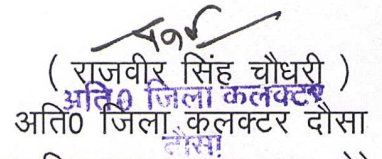 ( राजवीर सिंह चौधरी )
अति0 जिला कलक्टर
अति0 जिला कलक्टर दौसा
दौसा